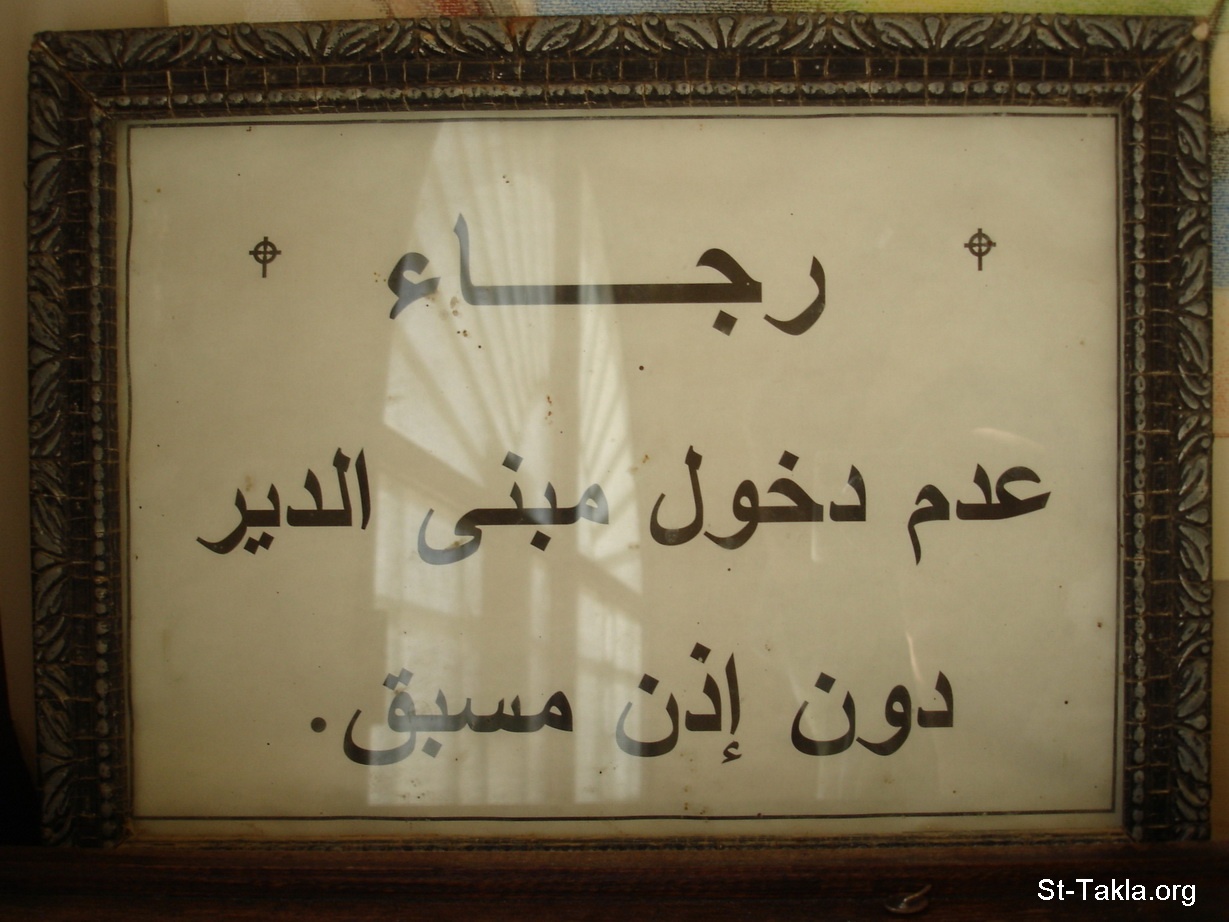 رجـــــاء
عدم دخول مبنى الدير
دون إذن مسبق.
St-Takla.org